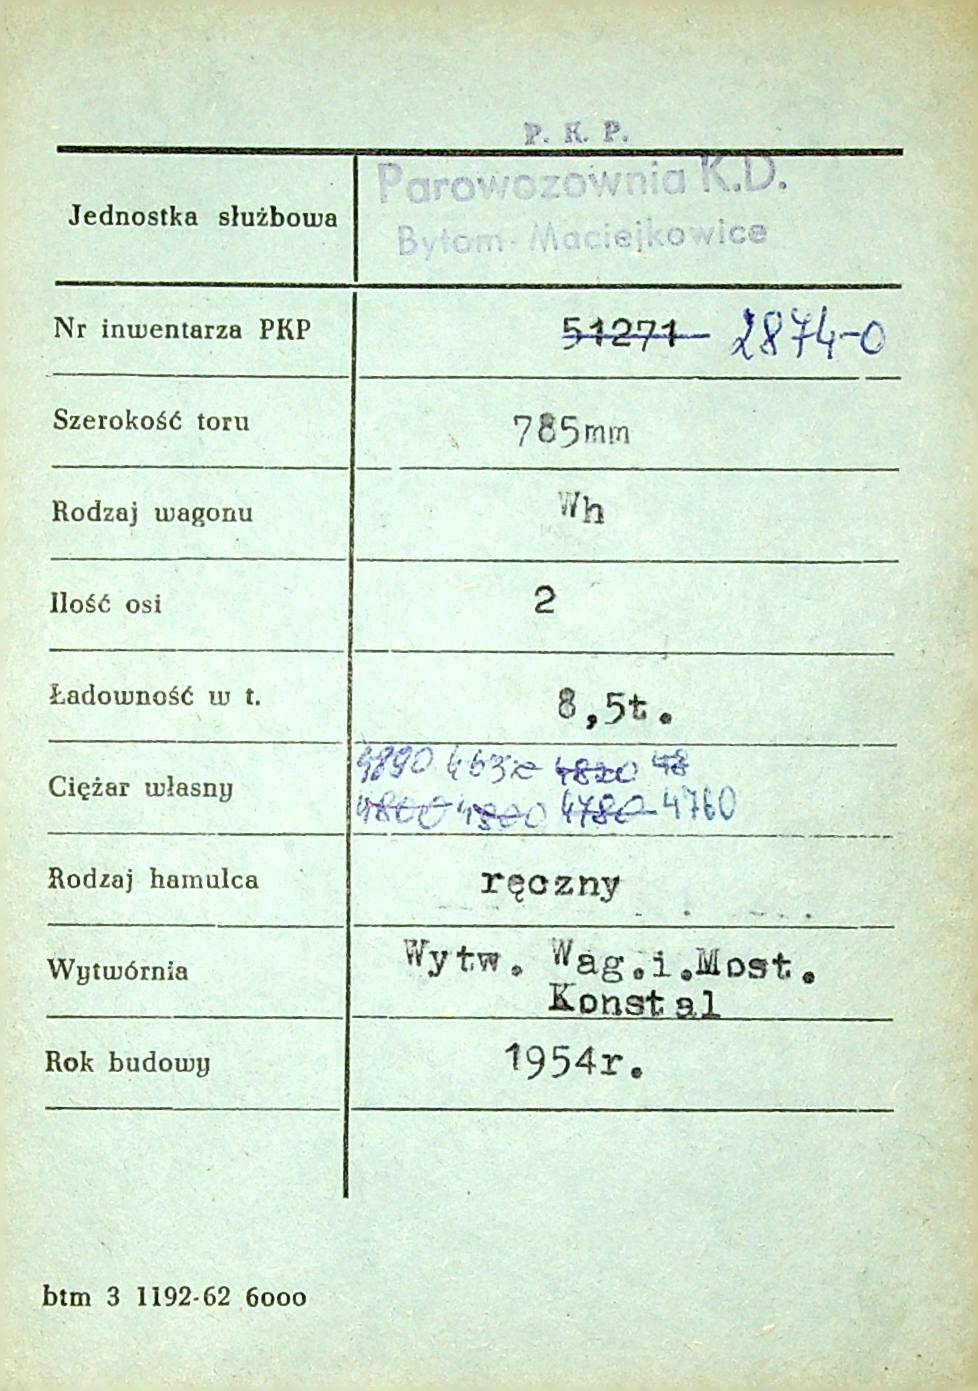 P. K. P.
Parowozownia K.D.
Jednostka służbowa
Bytom-Maciejkowice
Nr inwentarza PKP 51271 2874-0
Szerokość toru 785mm
Rodzaj wagonu Wh
Ilość osi 2
Ładowność w t. 8,5t.
4890 4820 48
Ciężar własny
4800 4800 4780 4760
Rodzaj hamulca ręczny
Wytwórnia Wytw. Wag.i.Most.
Konstal
Rok budowy 1954r.
btm 3 1192-62 6000